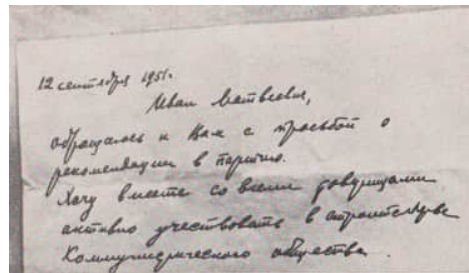 12 сентября 1951.
Иван Матвеевич,
обращаюсь к Вам с просьбой о
рекомендации в партию.
Хочу вместе со всеми
активно участвовать в строительстве
Коммунистического общества